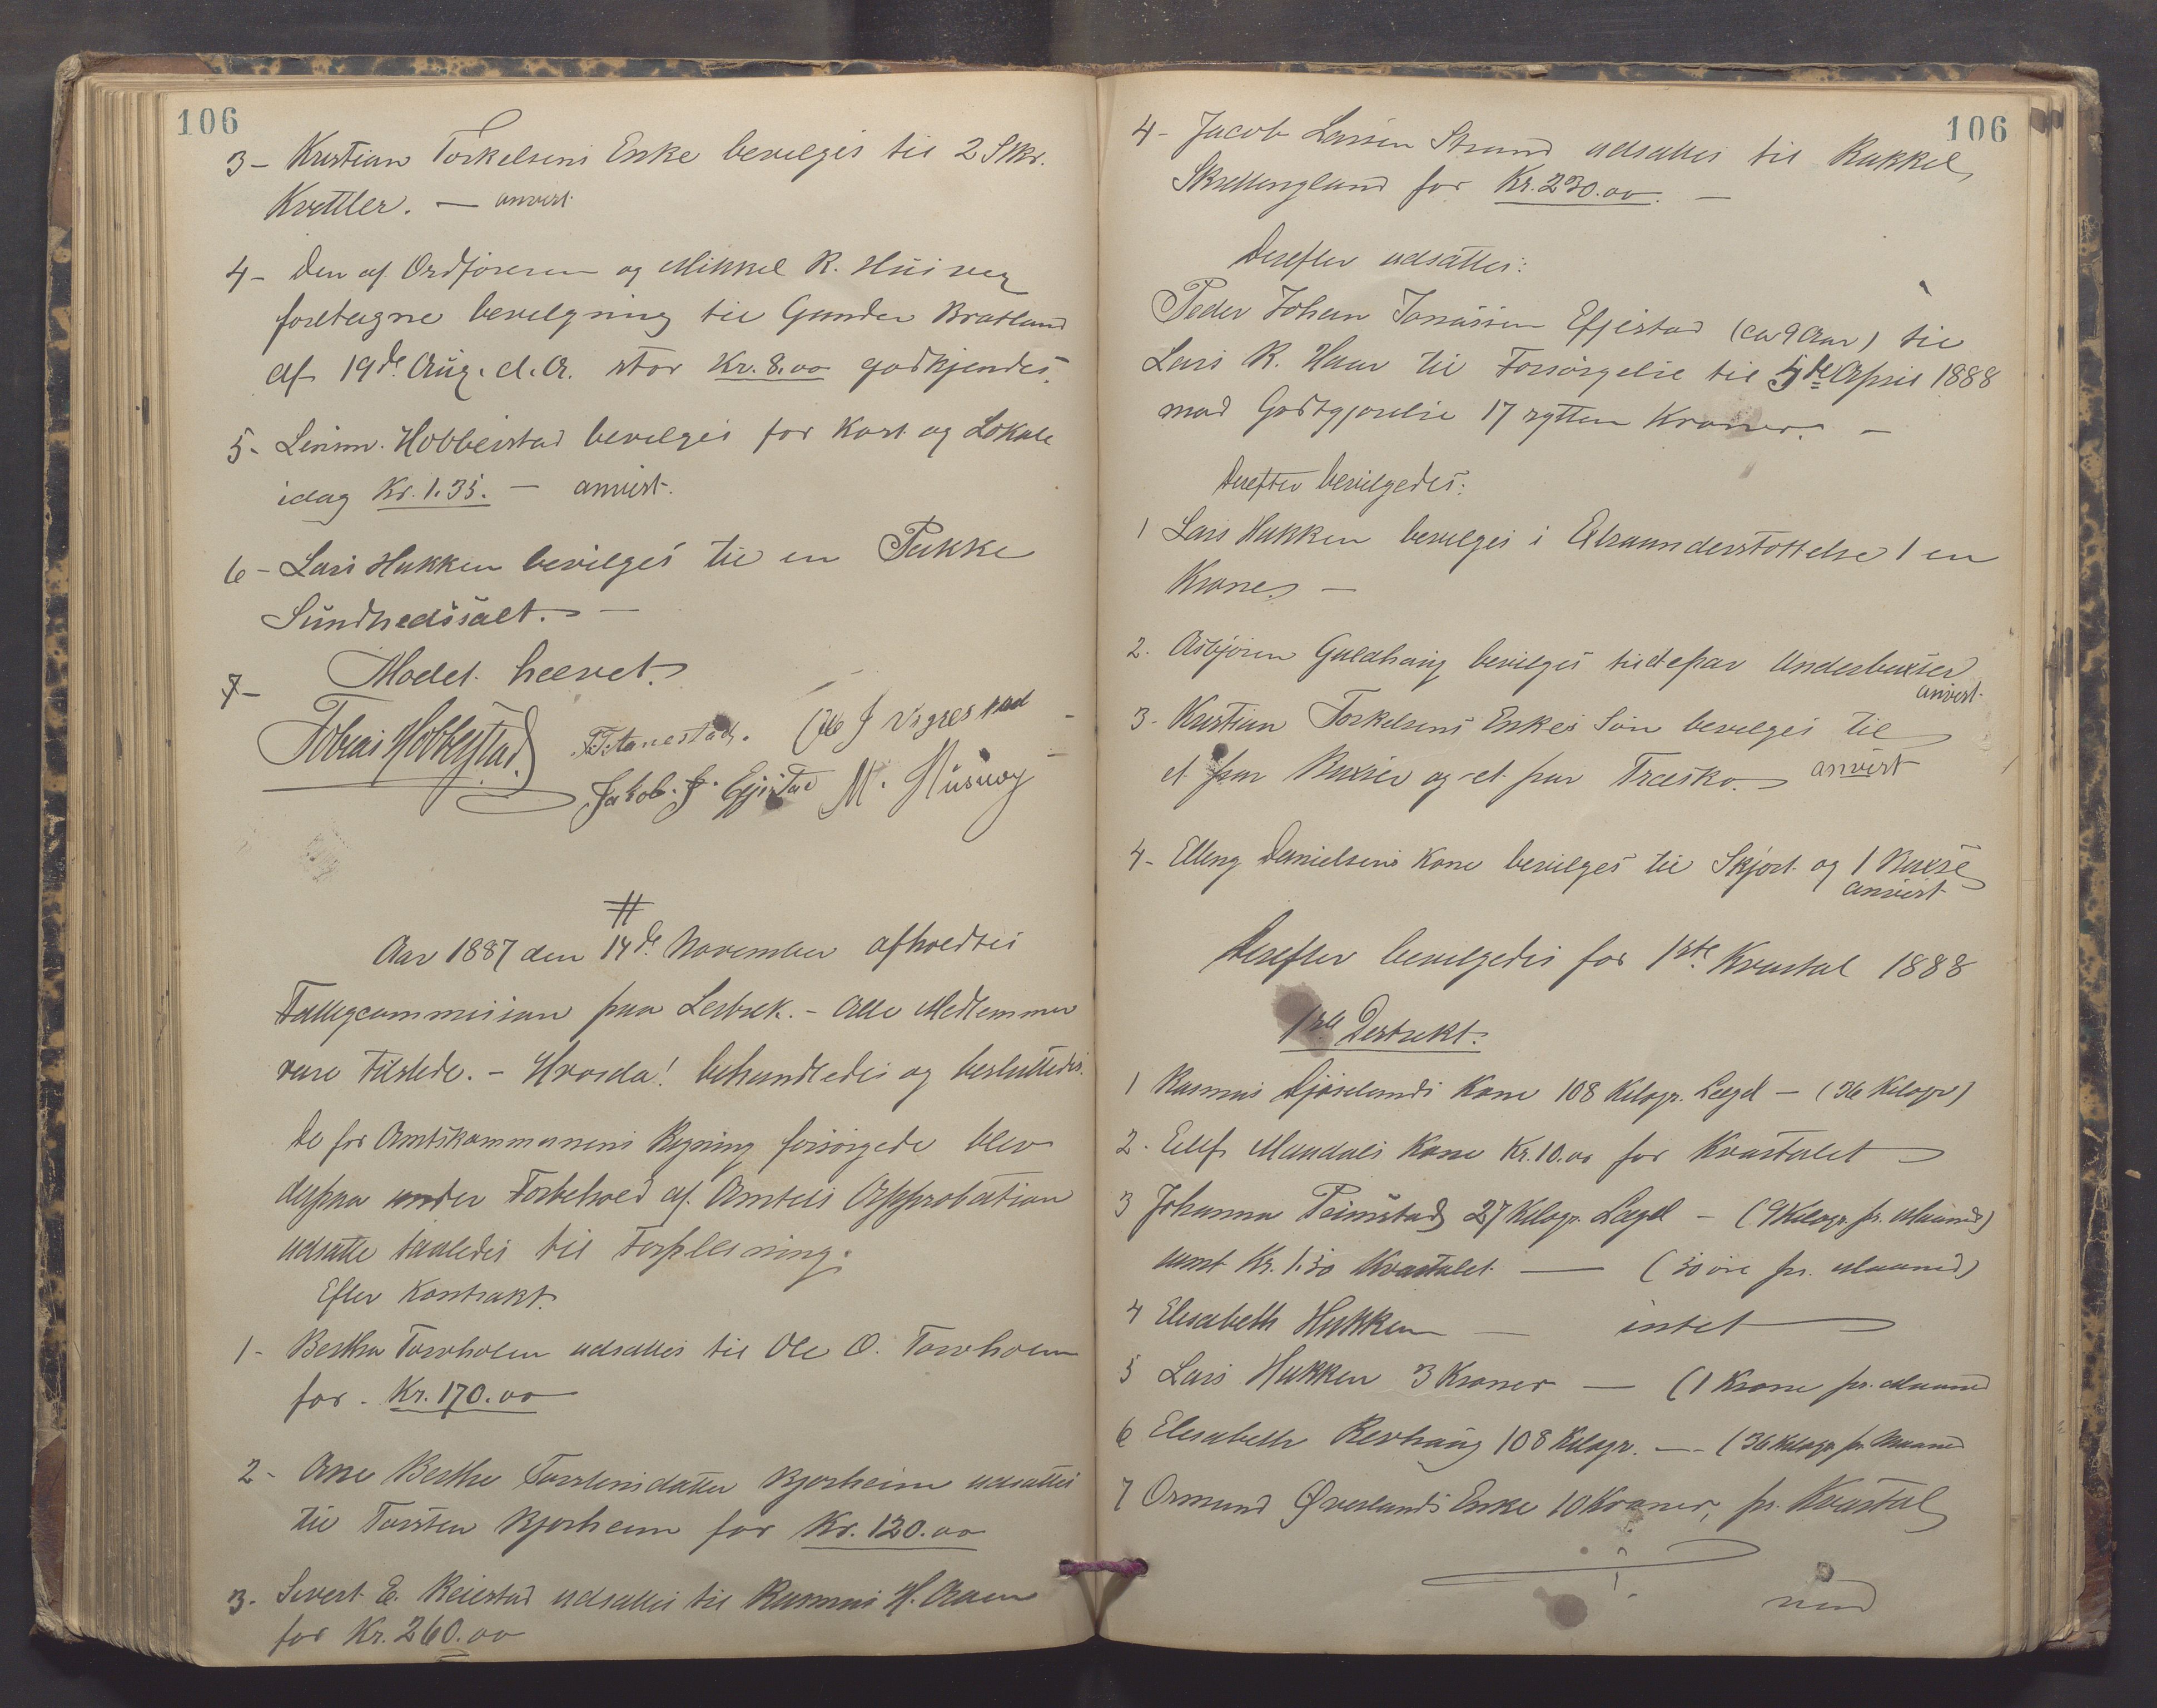 106
3 - Kristian Torkelsens Enke bevilges til 2 Stkr.
Kvittler. — anvist.
4 - Den af Ordføreren og Mikkel R. Husvæg
foretagne bevilgning til Gunder Bratland
af 19de Aug. d. A. stor Kr. 8.00 godkjendes.
5 - Lensm. Hobberstad bevilges for Kost og Lokale
idag Kr. 1.35. — anvist.
6 - Lars Hukken bevilges til en Pakke
Sundhedssalt. —
7 - Mødet hævet.
Tobias Hobberstad. T. Tanestad. Ole J Vignestad
Jakob. J. Ejistad M. Husvæg
#
Aar 1887 den 14de November afholdtes
Fattigcommission paa Lerbrek. - Alle Medlemmer
vare tilstede. - Hvorda! behandledes og besluttedes.
De for Amtskommunens Regning forsørgede blev
derpaa under Forbehold af Amtets Approbation
udsatte saaledes til Forpleining.
Efter Kontrakt.
1 - Bertha Torvholm udsættes til Ole O. Torvholm
for - Kr. 170.00
2 - Ane Berthe Torstensdatter Bjorheim udsættes
til Torsten Bjorheim for Kr. 120.00
3. Sivert E. Reiestad udsættes til Rasmus H. Aaen
for Kr. 260.00
106
4 - Jacob Larsen Strand udsættes til Rakkel
Skrettingland for Kr. 230.00. —
Derefter udsættes:
Peder Johan Jonassen Efjestad (ca 9 Aar) til
Lars R. Haar til Forsørgelse til 5te April 1888
mod Godtgjorelse 17 sytten Kroner. —
Derefter bevilgedes:
1 Lars Hukken bevilges i Extraunderstøttelse 1 en
Krone. —
2. Asbjørn Guldhaug bevilges til et par Underbuxser
anvist.
3. Kristian Torkelsens Enkes Søn bevilges til
et par Buxser og et par Træsko. anvist
4 - Elling Danielsens Kone bevilges til Skjort og 1 Buxse
anvist
Derefter bevilgedes for 1ste Kvartal 1888
1ste Distrikt.
1 Rasmus Djøselands Kone 108 Kilogr. Lægd — (36 Kilogr)
2. Eilef Mandals Kone Kr. 10.00 for Kvartalet
3 Johanna Taimstad 27 Kilogr. Lægd — (9 Kilogr. pr. Maaned)
samt Kr. 1.50 Kvartalet — (50 øre pr. Maaned)
4 Elisabeth Hukken — intet
5 Lars Hukken 3 Kroner — (1 Krone pr. Maaned
6 Elisabeth Revhaug 108 Kilogr. — (36 Kilogr pr. Maaned
7 Ormund Øverlands Enke 10 Kroner, pr. Kvartal